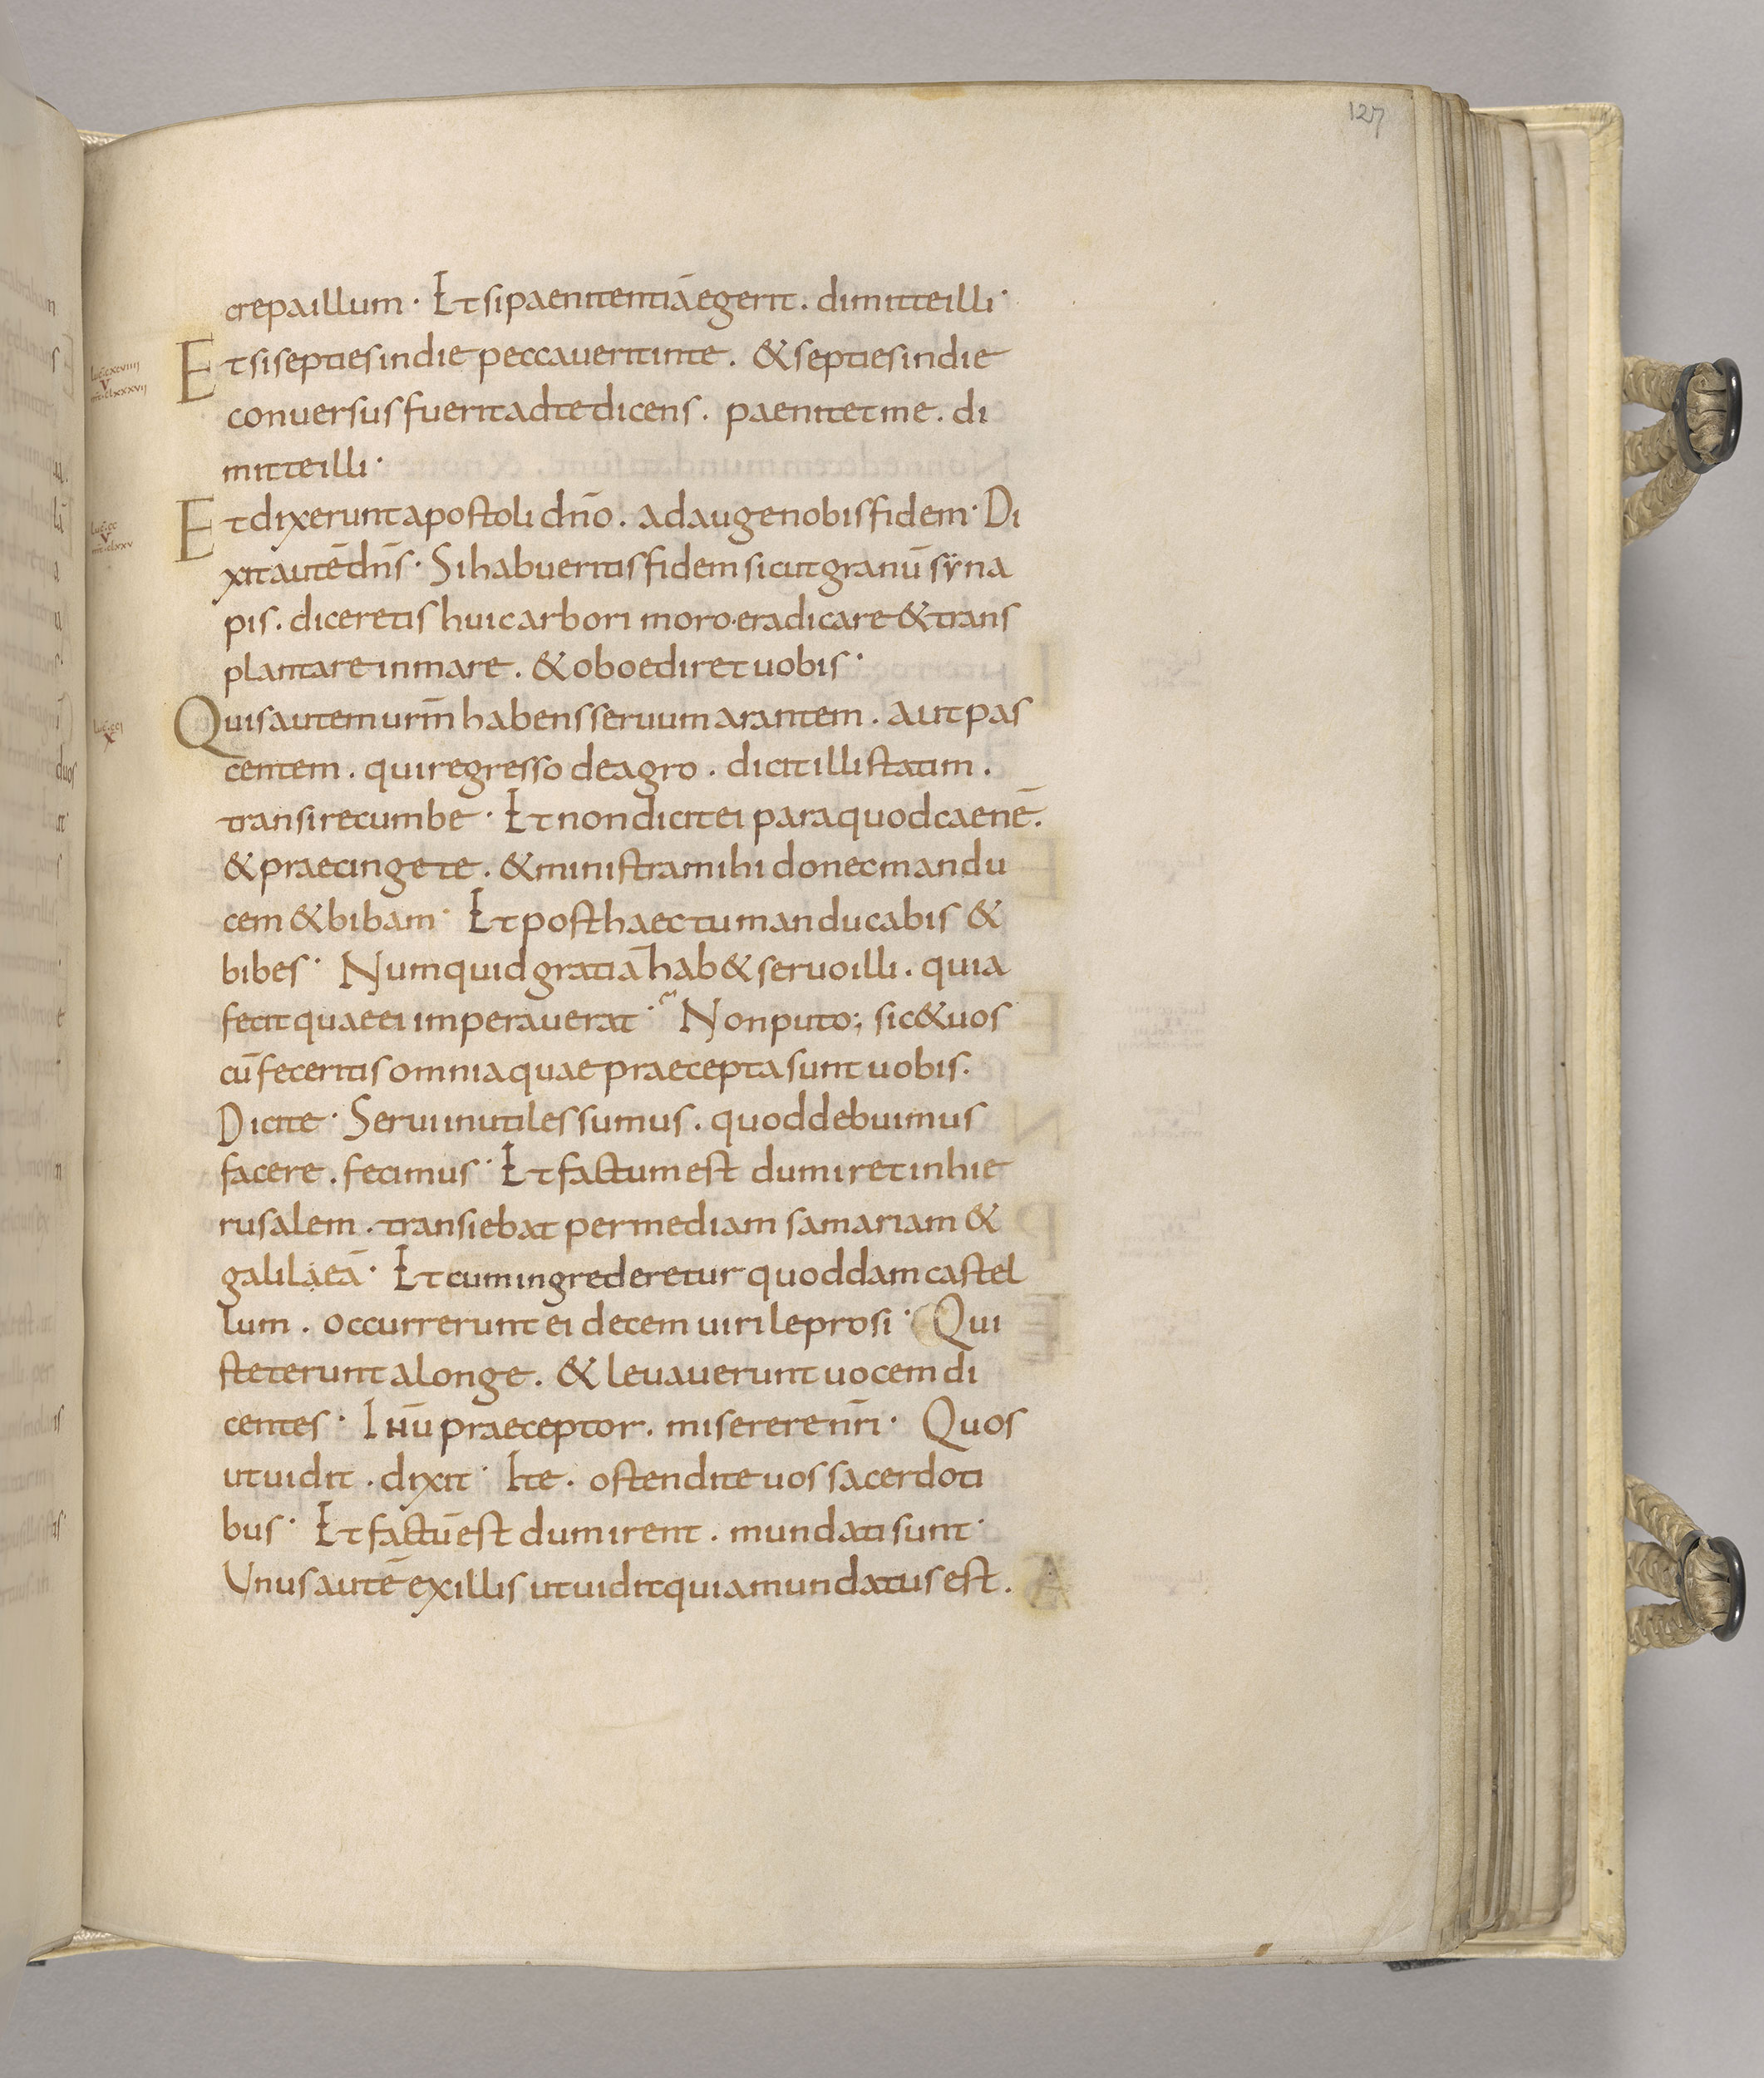 127
crepa illum · Et si paenitentiā egerit . dimitte illi ·
Et si septies in die peccaverit in te . & septies in die
conversus fuerit ad te dicens . paenitet me . di
mitte illi ·
Et dixerunt apostoli dn̄o . adauge nobis fidem · Di
xit autē dn̄s · Si habueritis fidem sicut granū sÿna
pis . diceretis huic arbori moro · eradicare & trans
plantare in mare . & oboediret uobis ·
Quis autem urm̄ habens seruum arantem . aut pas
centem . qui regresso de agro . dicit illi statim .
transi recumbe · Et non dicit ei para quod caenē .
& praecinge te . & ministra mihi donec mandu
cem & bibam · Et post haec tu manducabis &
bibes · Numquid gratiā hab& seruo illi . quia
fecit quae ei imperauerat · Non puto ; sic & uos
cū feceritis omnia quae praecepta sunt uobis .
Dicite · Serui inutiles sumus . quod debuimus
facere . fecimus · Et factum est dum iret in hie
rusalem . transiebat per mediam samariam &
galilaeā · Et cum ingrederetur quoddam castel
lum . occurrerunt ei decem uiri leprosi · Qui
steterunt a longe . & leuauerunt uocem di
centes · Ihū praeceptor . miserere nr̄i · Quos
ut uidit . dixit · Ite . ostendite uos sacerdoti
bus · Et factū est dum irent . mundati sunt ·
Unus autē ex illis ut uidit quia mundatus est .